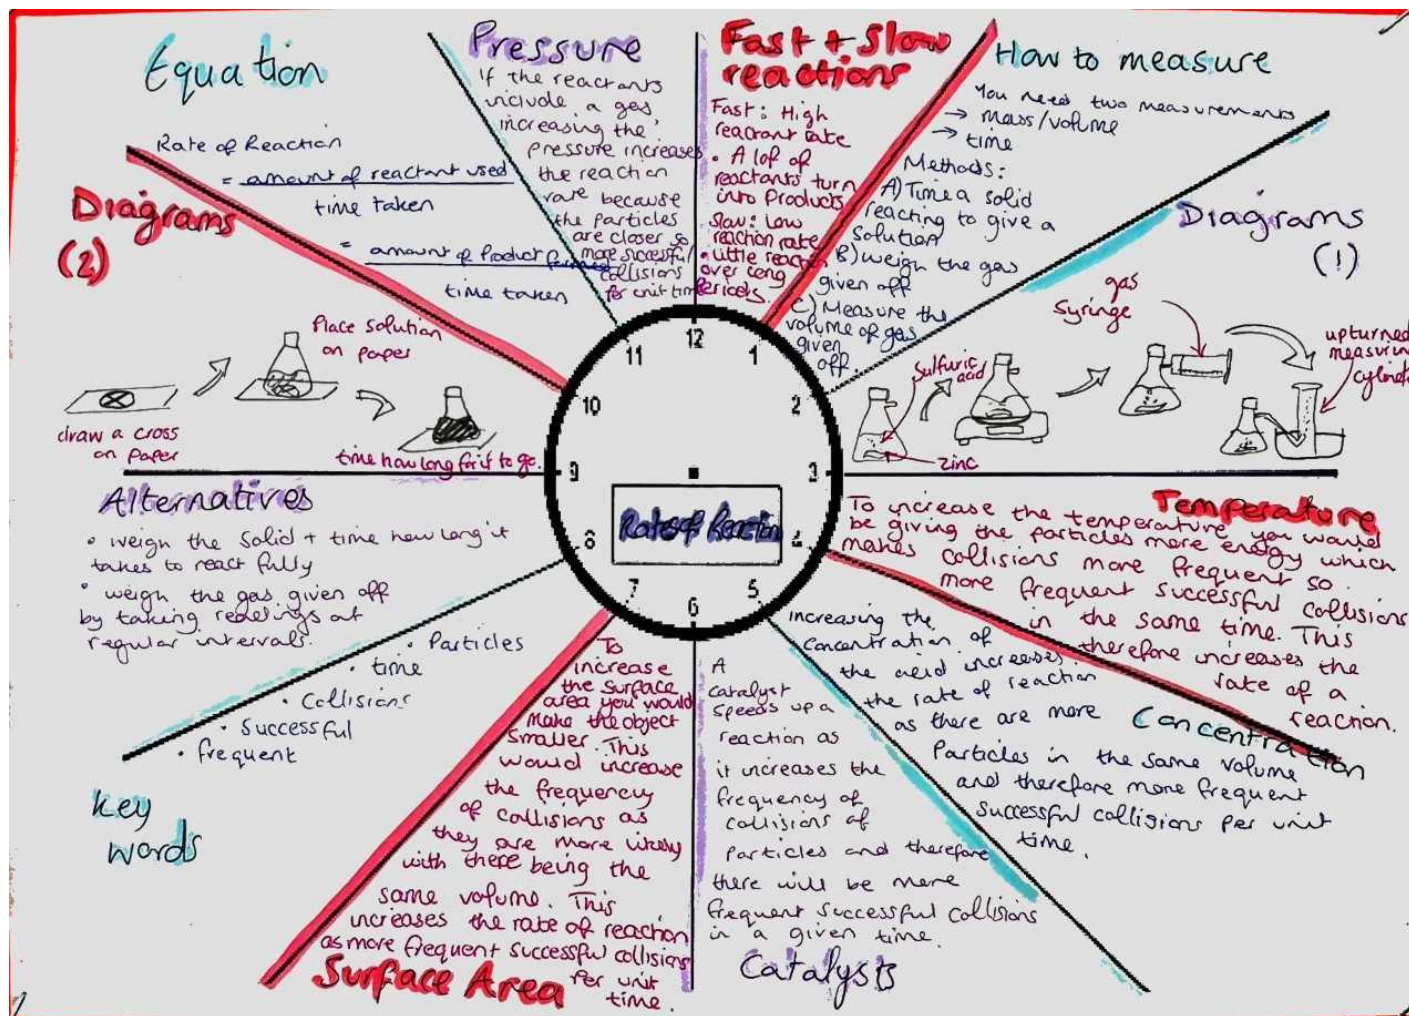 Equation
Rate of Reaction
= amount of reactant used
time taken
= amount of Product formed
time taken
Pressure
If the reactants
include a gas,
increasing the
pressure increases
the reaction
rate because
the particles
are closer so
more successful
collisions
per unit time
Fast + Slow
reactions
Fast: High
reactant rate
• A lot of
reactants turn
into Products
Slow: Low
reaction rate
• Little reaction
over long
Periods.
How to measure
You need two measurements
→ mass/volume
→ time
Methods:
A) Time a solid
reacting to give a
solution
B) weigh the gas
given off
C) Measure the
volume of gas
given
off.
Diagrams
(1)
Sulfuric
acid
zinc
gas
syringe
upturned
measuring
Temperature
To increase the temperature you would
be giving the particles more energy which
makes collisions more frequent so
more frequent successful collisions
in the same time. This
therefore increases the
rate of a
reaction.
Concentration
increasing the
concentration of
the acid increases
the rate of reaction
as there are more
Particles in the same volume
and therefore more frequent
successful collisions per unit
time.
A
catalyst
speeds up a
reaction as
it increases the
frequency of
collisions of
particles and therefore
there will be more
frequent successful collisions
in a given time.
Catalysts
To
increase
the surface
area you would
make the object
smaller. This
would increase
the frequency
of collisions as
they are more likely
with there being the
same volume. This
increases the rate of reaction
as more frequent successful collisions
Per unit
time.
Surface Area
Key
words
• Particles
• time
• Collisions
• Successful
• frequent
Alternatives
• weigh the solid + time how long it
takes to react fully
• weigh the gas given off
by taking readings at
regular intervals.
Diagrams
(2)
draw a cross
on paper
Place solution
on paper
time how long for it to go.
12
1
2
3
4
5
6
7
8
9
10
11
Rates of Reaction